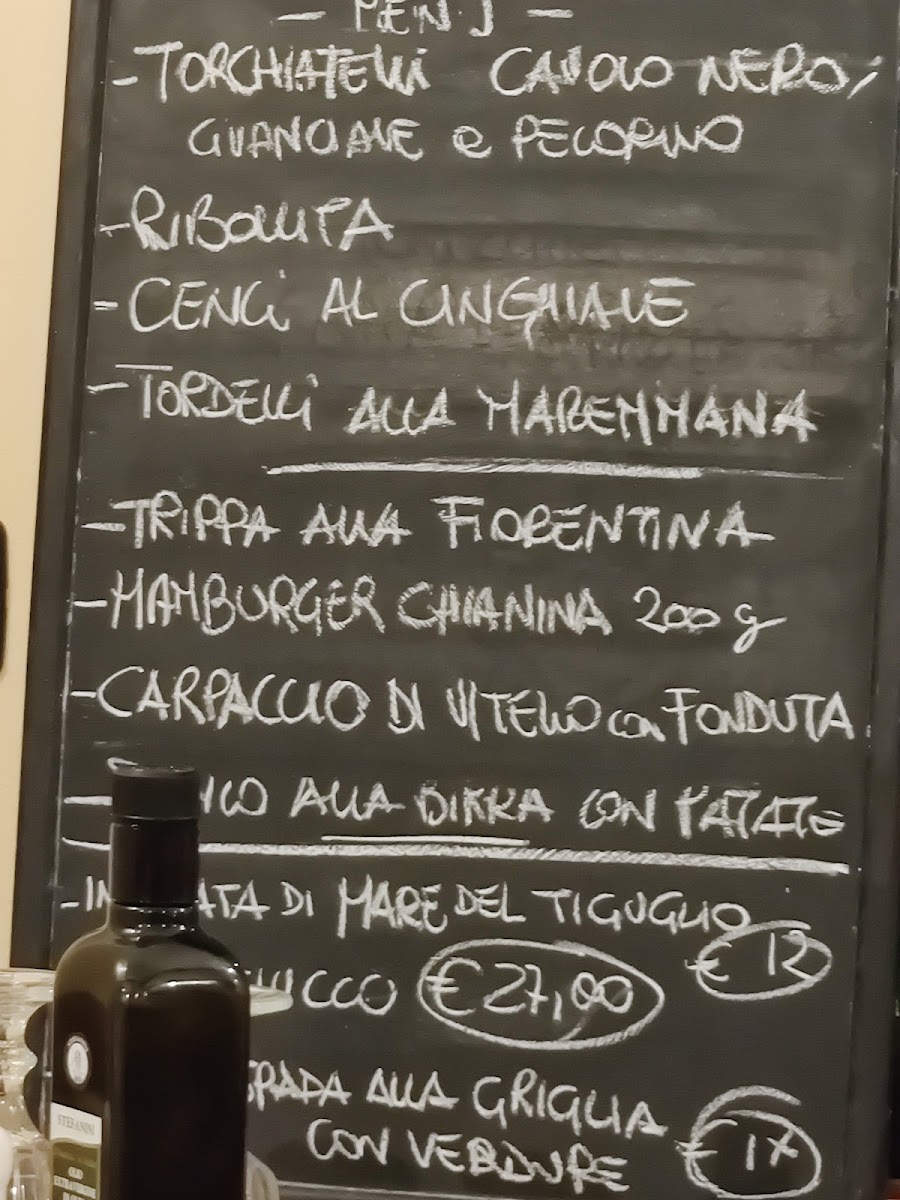 - TORCHIATELLI CAVOLO NERO,
GUANCIALE e PECORINO
- RIBOLLITA
- CENCI AL CINGHIALE
- TORDELLI ALLA MAREMMANA
- TRIPPA ALLA FIORENTINA
- HAMBURGER CHIANINA 200 g
- CARPACCIO DI VITELLO con FONDUTA
- ALLA BIRRA CON PATATE
- DI MARE DEL TIGUGLIO
€ 12
€ 27,00
ALLA GRIGLIA
CON VERDURE
€ 17
STEFANINI
OLIO